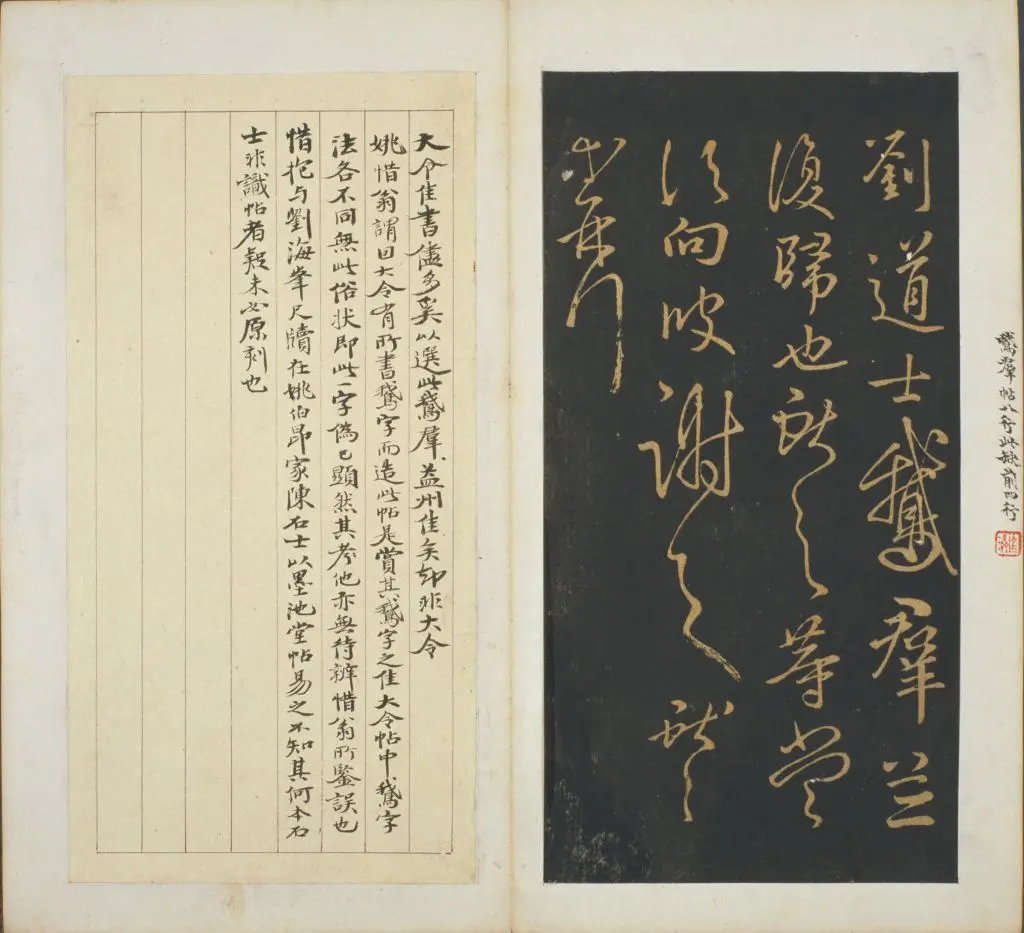 鵞羣帖八行此缺前四行
劉道士鵞羣並
復歸也獻之等當
須向彼謝之獻之
等再拜
大令佳書儘多奚以選此鵞羣、益州佳矣却非大令
姚惜翁謂囙大令有所書鵞字而造此帖是賞其鵞字之佳大令帖中鵞字
法各不同無此俗状即此一字偽已顯然其考他亦無待辨惜翁所鑒誤也
惜抱与劉海峯尺牘在姚伯昂家陳石士以墨池堂帖易之不知其何本石
士非識帖者疑未必原刻也